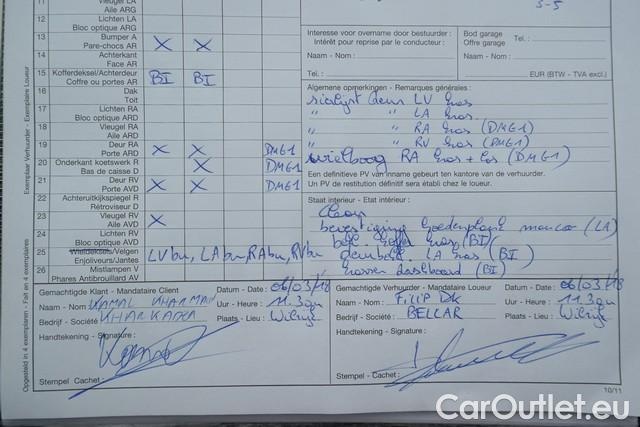 11 Vleugel LA
Aile ARG
12 Lichten LA
Bloc optique ARG
13 Bumper A X X
Pare-chocs AR
14 Achterkant
Face AR
15 Kofferdeksel/Achterdeur BI BI
Coffre ou portes AR
16 Dak
Toit
17 Lichten RA
Bloc optique ARD
18 Vleugel RA
Aile ARD
19 Deur RA X X DMG1
Porte ARD
20 Onderkant koetswerk R X DMG1
Bas de caisse D
21 Deur RV X X DMG1
Porte AVD
22 Achteruitkijkspiegel R
Rétroviseur D
23 Vleugel RV X
Aile AVD
24 Lichten RV
Bloc optique AVD
25 Wieldeksels/Velgen LVbu, LAbu, RAbu, RVbu
Enjoliveurs/Jantes
26 Mistlampen V
Phares Antibrouillard AV
3-5
Interesse voor overname door bestuurder :
Intérêt pour reprise par le conducteur :
Naam - Nom :
Tel. :
Bod garage
Offre garage Tel. :
Naam - Nom :
EUR (BTW - TVA excl.)
Algemene opmerkingen - Remarques générales :
sierlijst deur LV
" " LA
" " RA (DMG1)
" " RV (DMG1)
wielboog RA + (DMG1)
Een definitieve PV van inname gebeurt ten kantore van de verhuurder.
Un PV de restitution définitif sera établi chez le loueur.
Staat interieur - Etat interieur :
Clean
bevestiging (LA)
(BI)
LA (BI)
dashboard (BI)
Gemachtigde Klant - Mandataire Client
Naam - Nom : KAMAL KHARMAN
Bedrijf - Société : KHARKADIA
Handtekening - Signature :
Stempel Cachet :
Datum - Date : 06/03/18
Uur - Heure : 11.30u
Plaats - Lieu : Wilrijk
Gemachtigde Verhuurder - Mandataire Loueur
Naam - Nom : Filip
Bedrijf - Société : BELLAR
Handtekening - Signature :
Stempel - Cachet :
Datum - Date : 06/03/18
Uur - Heure : 11.30u
Plaats - Lieu : Wilrijk
10/11
Opgesteld in 4 exemplaren - Fait en 4 exemplaires
Exemplaar Verhuurder - Exemplaire Loueur
CarOutlet.eu